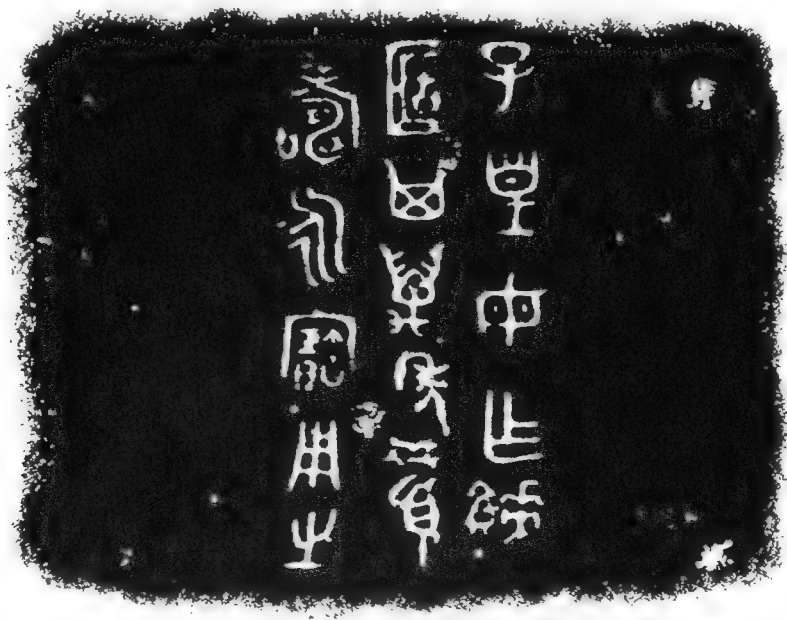 子皇母乍饙
簠其萬年眉
壽永寶用之